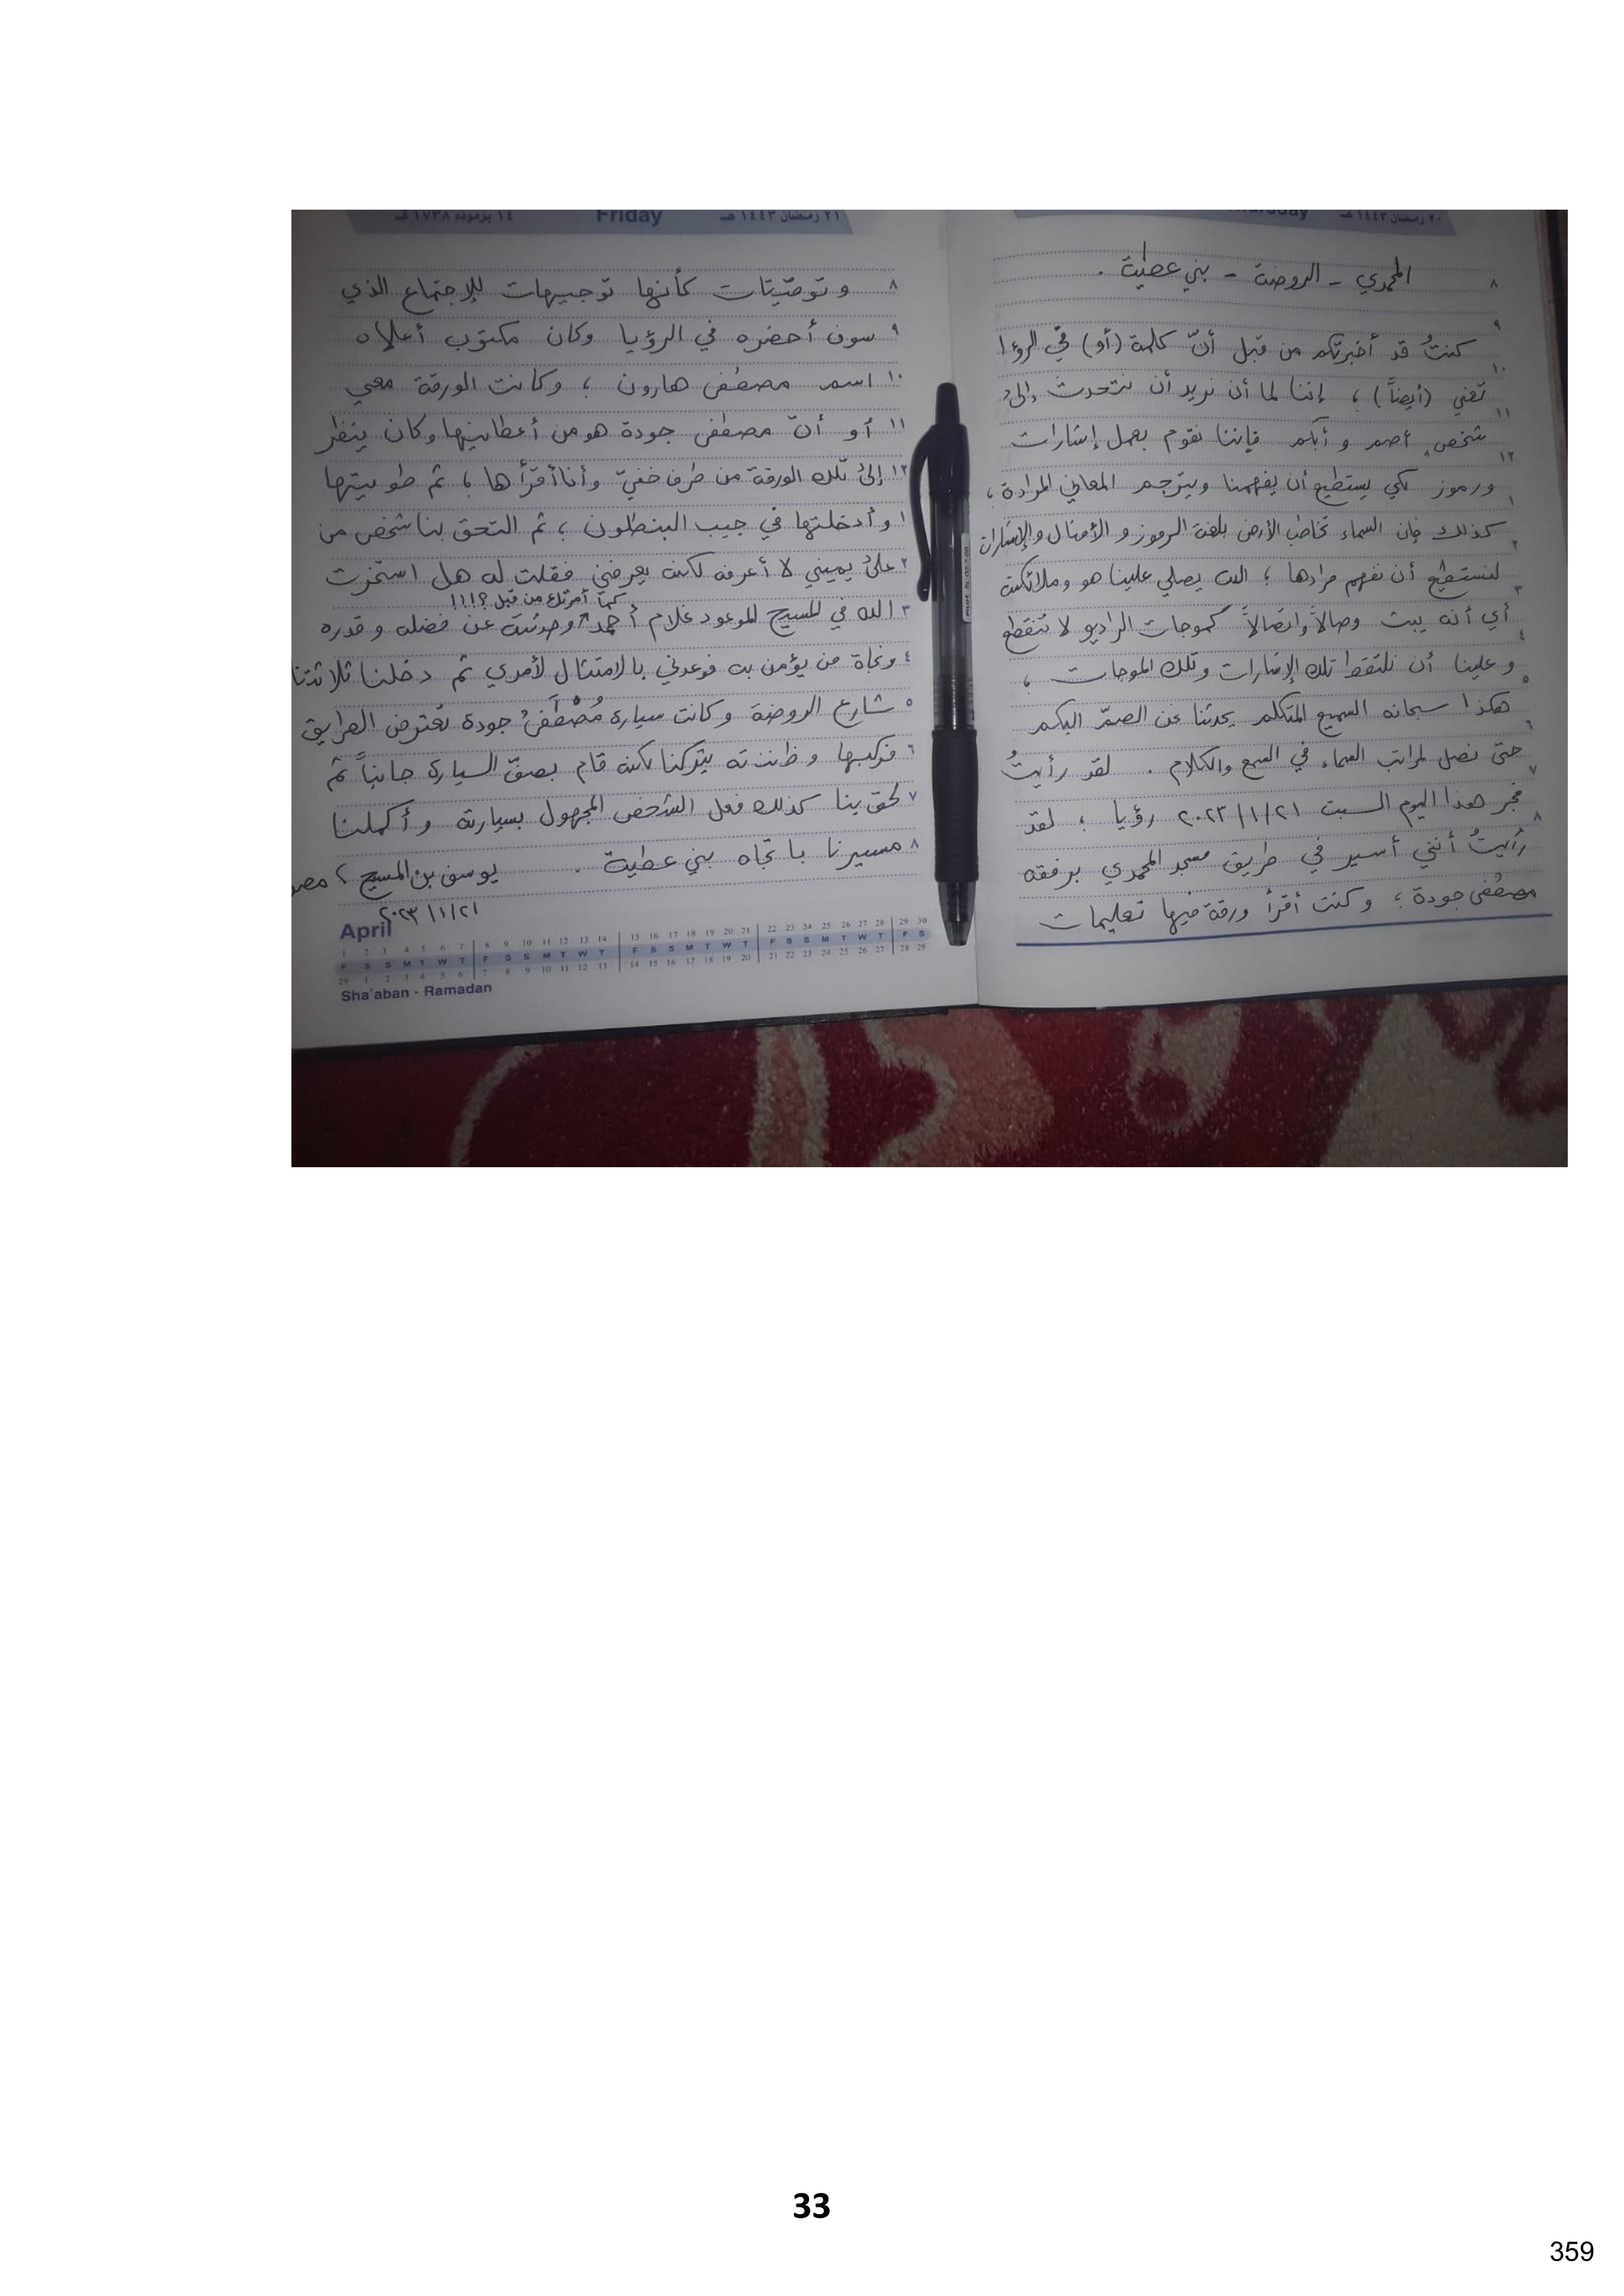 ٢٠ رمضان ١٤٤٣ هـ
المحمدي - الروضة - بني عطية .
كنتُ قد أخبرتكم من قبل أنّ كلمة (أو) في الرؤيا
تعني (أيضاً) ؛ إننا لما أن نريد أن نتحدث إلى
شخص أصم و أبكم فإننا نقوم بعمل إشارات
ورموز لكي يستطيع أن يفهمنا ويترجم المعاني المرادة ؛
كذلك فإن السماء تخاطب الأرض بلغة الرموز و الأمثال والإشارات
لنستطيع أن نفهم مرادها ؛ الله يصلي علينا هو وملائكته
أي أنه يبث وصالاً واتصالاً كموجات الراديو لا تنقطع
و علينا أن نلتقط تلك الإشارات وتلك الموجات ؛
هكذا سبحانه السميع المتكلم يحدثنا نحن الصمّ البكم
حتى نصل لمراتب السماء في السمع والكلام . لقد رأيتُ
فجر هذا اليوم السبت ٢٠٢٣/١/٢١ رؤيا ؛ لقد
رأيتُ أنني أسير في طريق مسجد المحمدي برفقة
مصطفى جودة ؛ وكنت أقرأ ورقة فيها تعليمات
١٤ برمودة ١٧٣٨ Friday ٢١ رمضان ١٤٤٣ هـ
٨ وتوصيات كأنها توجيهات للإجتماع الذي
٩ سوف أحضره في الرؤيا وكان مكتوب أعلاه
١٠ اسم مصطفى هارون ؛ وكانت الورقة معي
١١ أو أنّ مصطفى جودة هو من أعطانيها وكان ينظر
١٢ إلى تلك الورقة من طرف خفيّ وأنا أقرأها ؛ ثم طويتها
١ وأدخلتها في جيب البنطلون ؛ ثم التحق بنا شخص من
٢ على يميني لا أعرفه لكنه يعرفني فقلت له هل استخرت
كما أمرتك من قبل ؟!!!
٣ الله في المسيح الموعود غلام أحمد وحدثته عن فضله وقدره
٤ ونجاة من يؤمن به فوعدني بالامتثال لأمري ثم دخلنا ثلاثتنا
٥ شارع الروضة وكانت سيارة مُصْطَفَىٰ جودة تعترض الطريق
٦ فركبها وظننته يتركنا لكنه قام بصفّ السيارة جانباً ثم
٧ لحق بنا كذلك فعل الشخص المجهول بسيارته وأكملنا
٨ مسيرنا باتجاه بني عطية .
يوسف بن المسيح ؛ مصر
٢٠٢٣/١/٢١
April
1 2 3 4 5 6 7 8 9 10 11 12 13 14 15 16 17 18 19 20 21 22 23 24 25 26 27 28 29 30
F S S M T W T F S S M T W T F S S M T W T F S S M T W T F S
29 1 2 3 4 5 6 7 8 9 10 11 12 13 14 15 16 17 18 19 20 21 22 23 24 25 26 27 28 29
Sha'aban - Ramadan
33
359